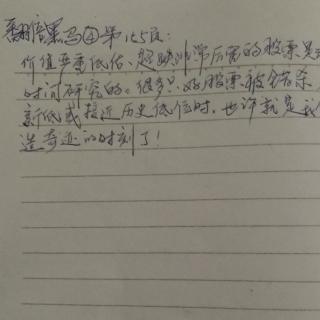 翻倍黑马④第165度:
价值严重低估、超跌非常厉害的股票是
时间研究的。很多只好股票被错杀
新低或接近历史低位时,也许就是我们
造奇迹的时刻了!